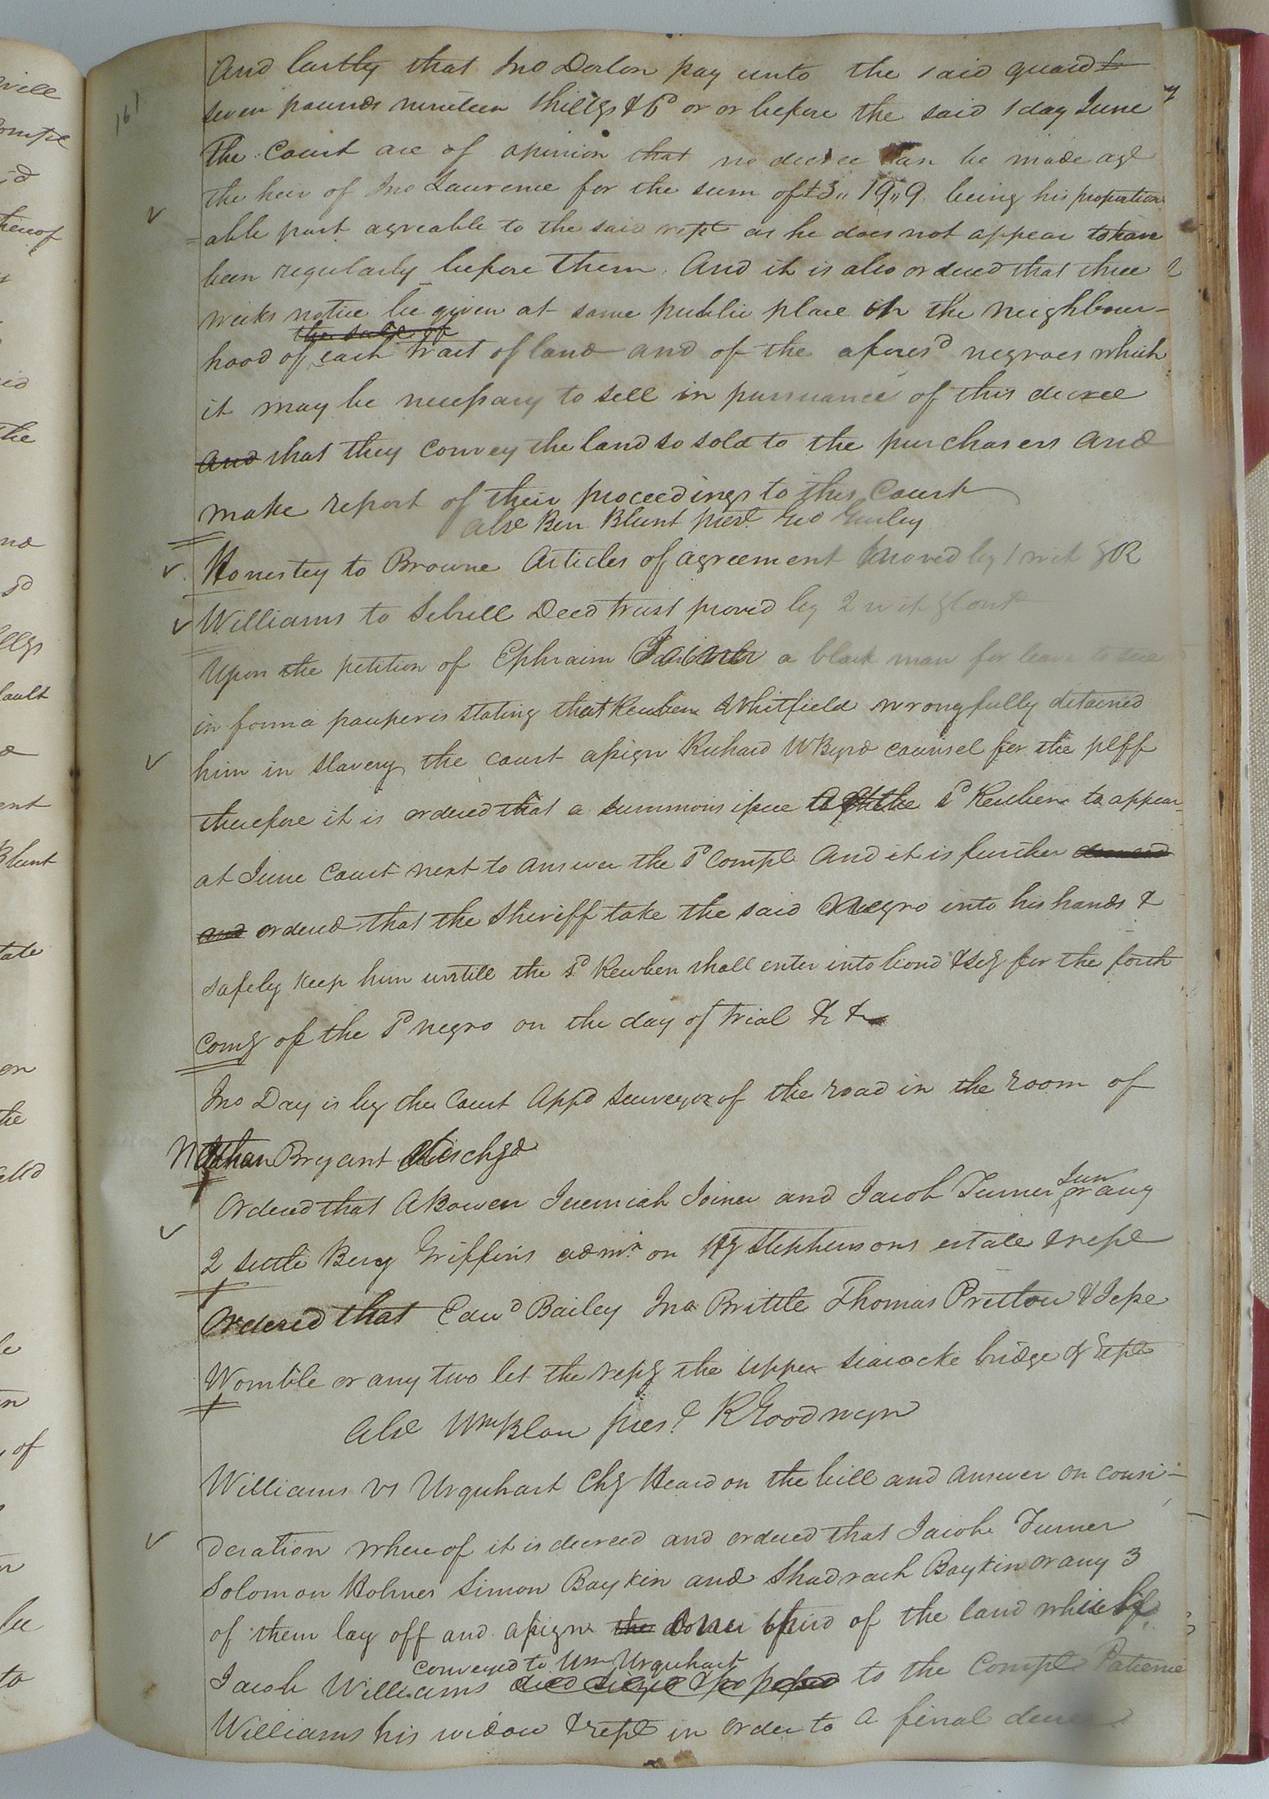 161
And lastly that Jno Dorlon pay unto the said guard
seven pounds nineteen shillgs & 6d or or before the said 1 day June
The Court are of opinion that no decree can be made agt
the heir of Jno Laurence for the sum of £3,, 19,, 9 being his proportion
=able part agreable to the said rept as he does not appear to have
been regularly before them. And it is also ordered that three
weeks notice be given at some public place in the neighbour-
the sale of
hood of each tract of land and of the aforesd negroes which
it may be necessary to sell in pursuance of this decree
and that they convey the land so sold to the purchasers and
make report of their proceedings to this Court
Abst Ben Blunt prest Geo Gurley
Honestey to Browne Articles of agreement proved by 1 wit & OR
Williams to Sebrell Deed trust proved by 2 wit & Cont
Upon the petition of Ephraim a black man for leave to sue
in forma pauperis stating that Reuben Whitfield wrongfully detained
him in slavery the court assign Richard W Byrd counsel for the plff
therefore it is ordered that a summons issue to the sd Reuben to appear
at June Court next to answer the sd Complt And it is further
and ordered that the Sheriff take the said Negro into his hands &
safely keep him untill the sd Reuben shall enter into bond & secy for the forth
comg of the sd negro on the day of trial &c &c
Jno Day is by the Court Appd Surveyor of the road in the room of
Nathan Bryant dischgd
Ordered that A Bowen Jeremiah Joiner and Jacob Turner Jun or any
2 settle Benj Griffin's admr on Hy Stephensons estate & rept
Ordered that Edwd Bailey Jno Brittle Thomas Pretlow & Jesse
Womble or any two let the repg the upper Seacocke bridge & Rept
Abst Wm Blow prest R Goodwyn
Williams vs Urquhart Chy Heard on the bill and answer on consi-
deration whereof it is decreed and ordered that Jacob Turner
Solomon Holmes Simon Boykin and Shadrach Boykin or any 3
of them lay off and assign the one third of the land which
conveyed to Wm Urquhart
Jacob Williams died seized & possessed to the Complt Patience
Williams his widow & rept in order to a final decree